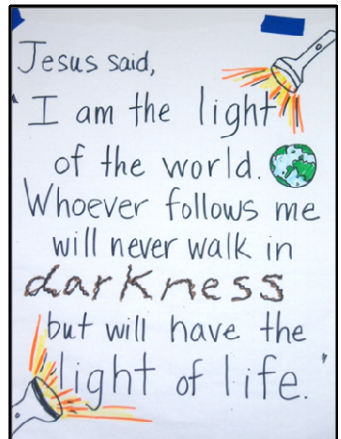 Jesus said,
"I am the light
of the world.
Whoever follows me
will never walk in
darkness
but will have the
light of life."